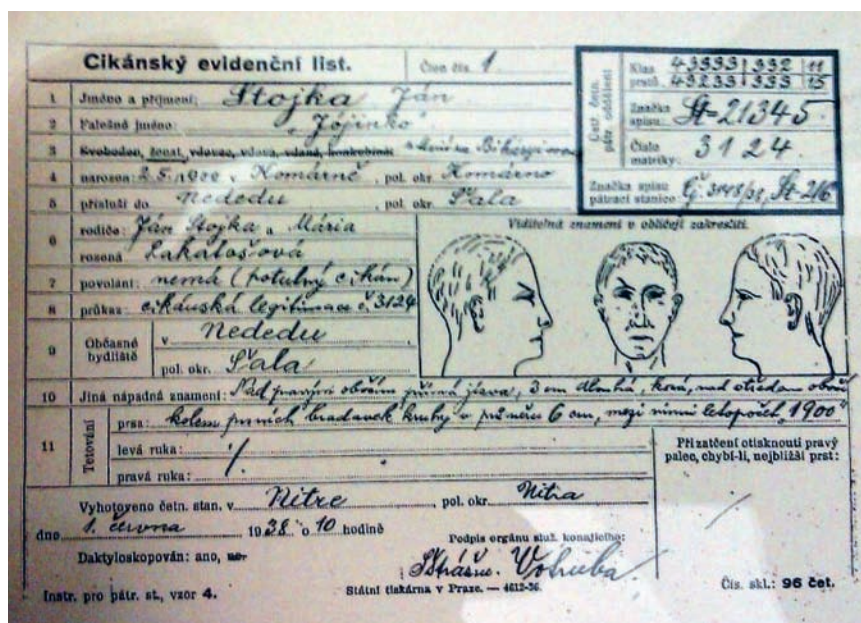 Cikánský evidenční list.
Člen čís. 1
Četř. četn. pátr. oddělení
Klas. prstů. 43333|332|11
43233|333|15
Značka spisu: St-21345.
Číslo matriky: 3124.
Značka spisu pátrací stanice: Čj. 3148/38, St-2/6
1 Jméno a příjmení: Stojka Ján
2 Falešné jméno: "Jójinko"
3 Svoboden, ženat, vdovec, vdova, vdaná, konkubinát s
4 narozen: 2.5.1900 v Komárně, pol. okr. Komárno
5 přísluší do Nededu, pol. okr. Šala
6 rodiče: Ján Stojka a Mária
rozená Lakatošová
7 povolání: nemá (potulný cikán)
8 průkaz: cikánská legitimace č. 3124
9 Občasné bydliště v Nededu
pol. okr. Šala
Viditelná znamení v obličeji zakresliti.
10 Jiná nápadná znamení: Nad pravým obočím příčná jizva, 3 cm dlouhá, kosá, nad středem obočí
11 Tetování
prsa: kolem prsních bradavek kruhy v průměru 6 cm, mezi nimi letopočet "1900"
levá ruka:
pravá ruka:
Při zatčení otisknouti pravý
palec, chybí-li, nejbližší prst:
Vyhotoveno četn. stan. v Nitre, pol. okr. Nitra
dne 1. června 1938 o 10 hodině
Podpis orgánu služ. konajícího:
Daktyloskopován: ano, ne.
Strážm. Votruba
Instr. pro pátr. st., vzor 4.
Státní tiskárna v Praze. — 4612-36.
Čís. skl.: 96 čet.